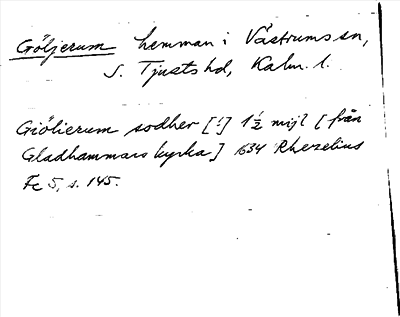 Göljerum hemman i Västrums sn,
S. Tjusts hd, Kalm. l.
Giölierum sodher [!] 1 1/2 mijl [från
Gladhammars kyrka] 1634 Rhezelius
Fc 5, s. 145.